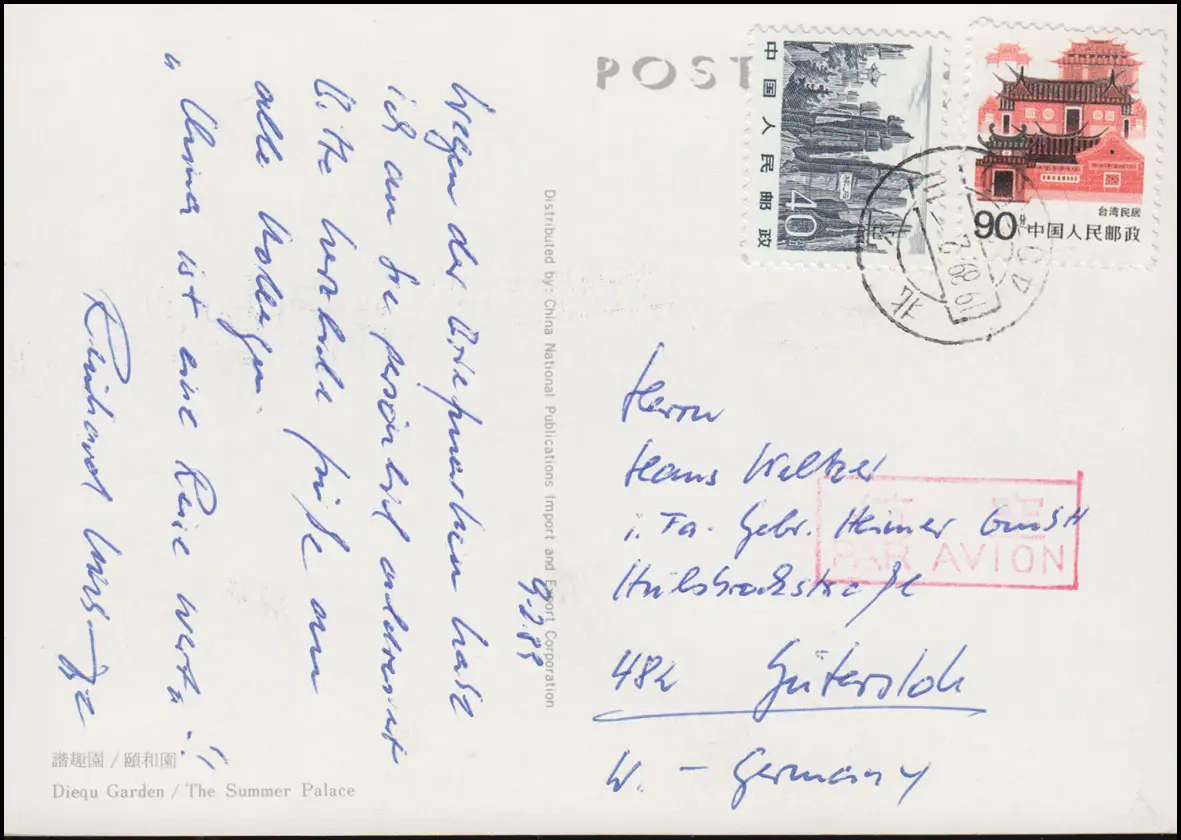 POST
中国人民邮政
40分
台湾民居
90分 中国人民邮政
北京
9.2.89
Wegen der Briefmarken habe
ich an Sie persönlich addressiert
Bitte herzliche Grüße an
alle Kollegen.
"China ist eine Reise wert" !!
Reinhard
Distributed by: China National Publications Import and Export Corporation
Herrn
Hans Weltzer
i. Fa. Gebr. Heimer GmbH
Hülsbrockstraße
482 Gütersloh
W. - Germany
航空
PAR AVION
諧趣園 / 頤和園
Diequ Garden / The Summer Palace